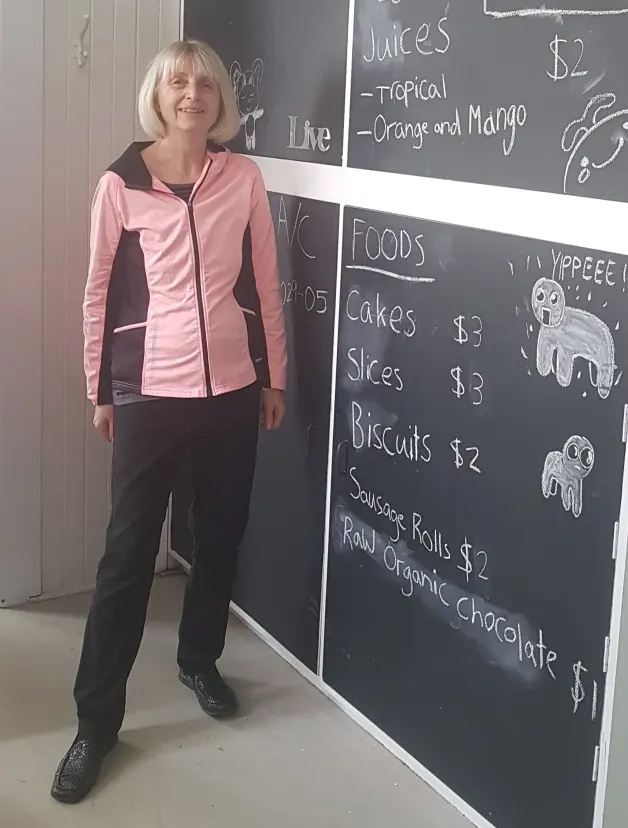 Juices $2
-Tropical
-Orange and Mango
Live
A/C
029-05
FOODS
YIPPEEE!
Cakes $3
Slices $3
Biscuits $2
Sausage Rolls $2
Raw Organic Chocolate $1